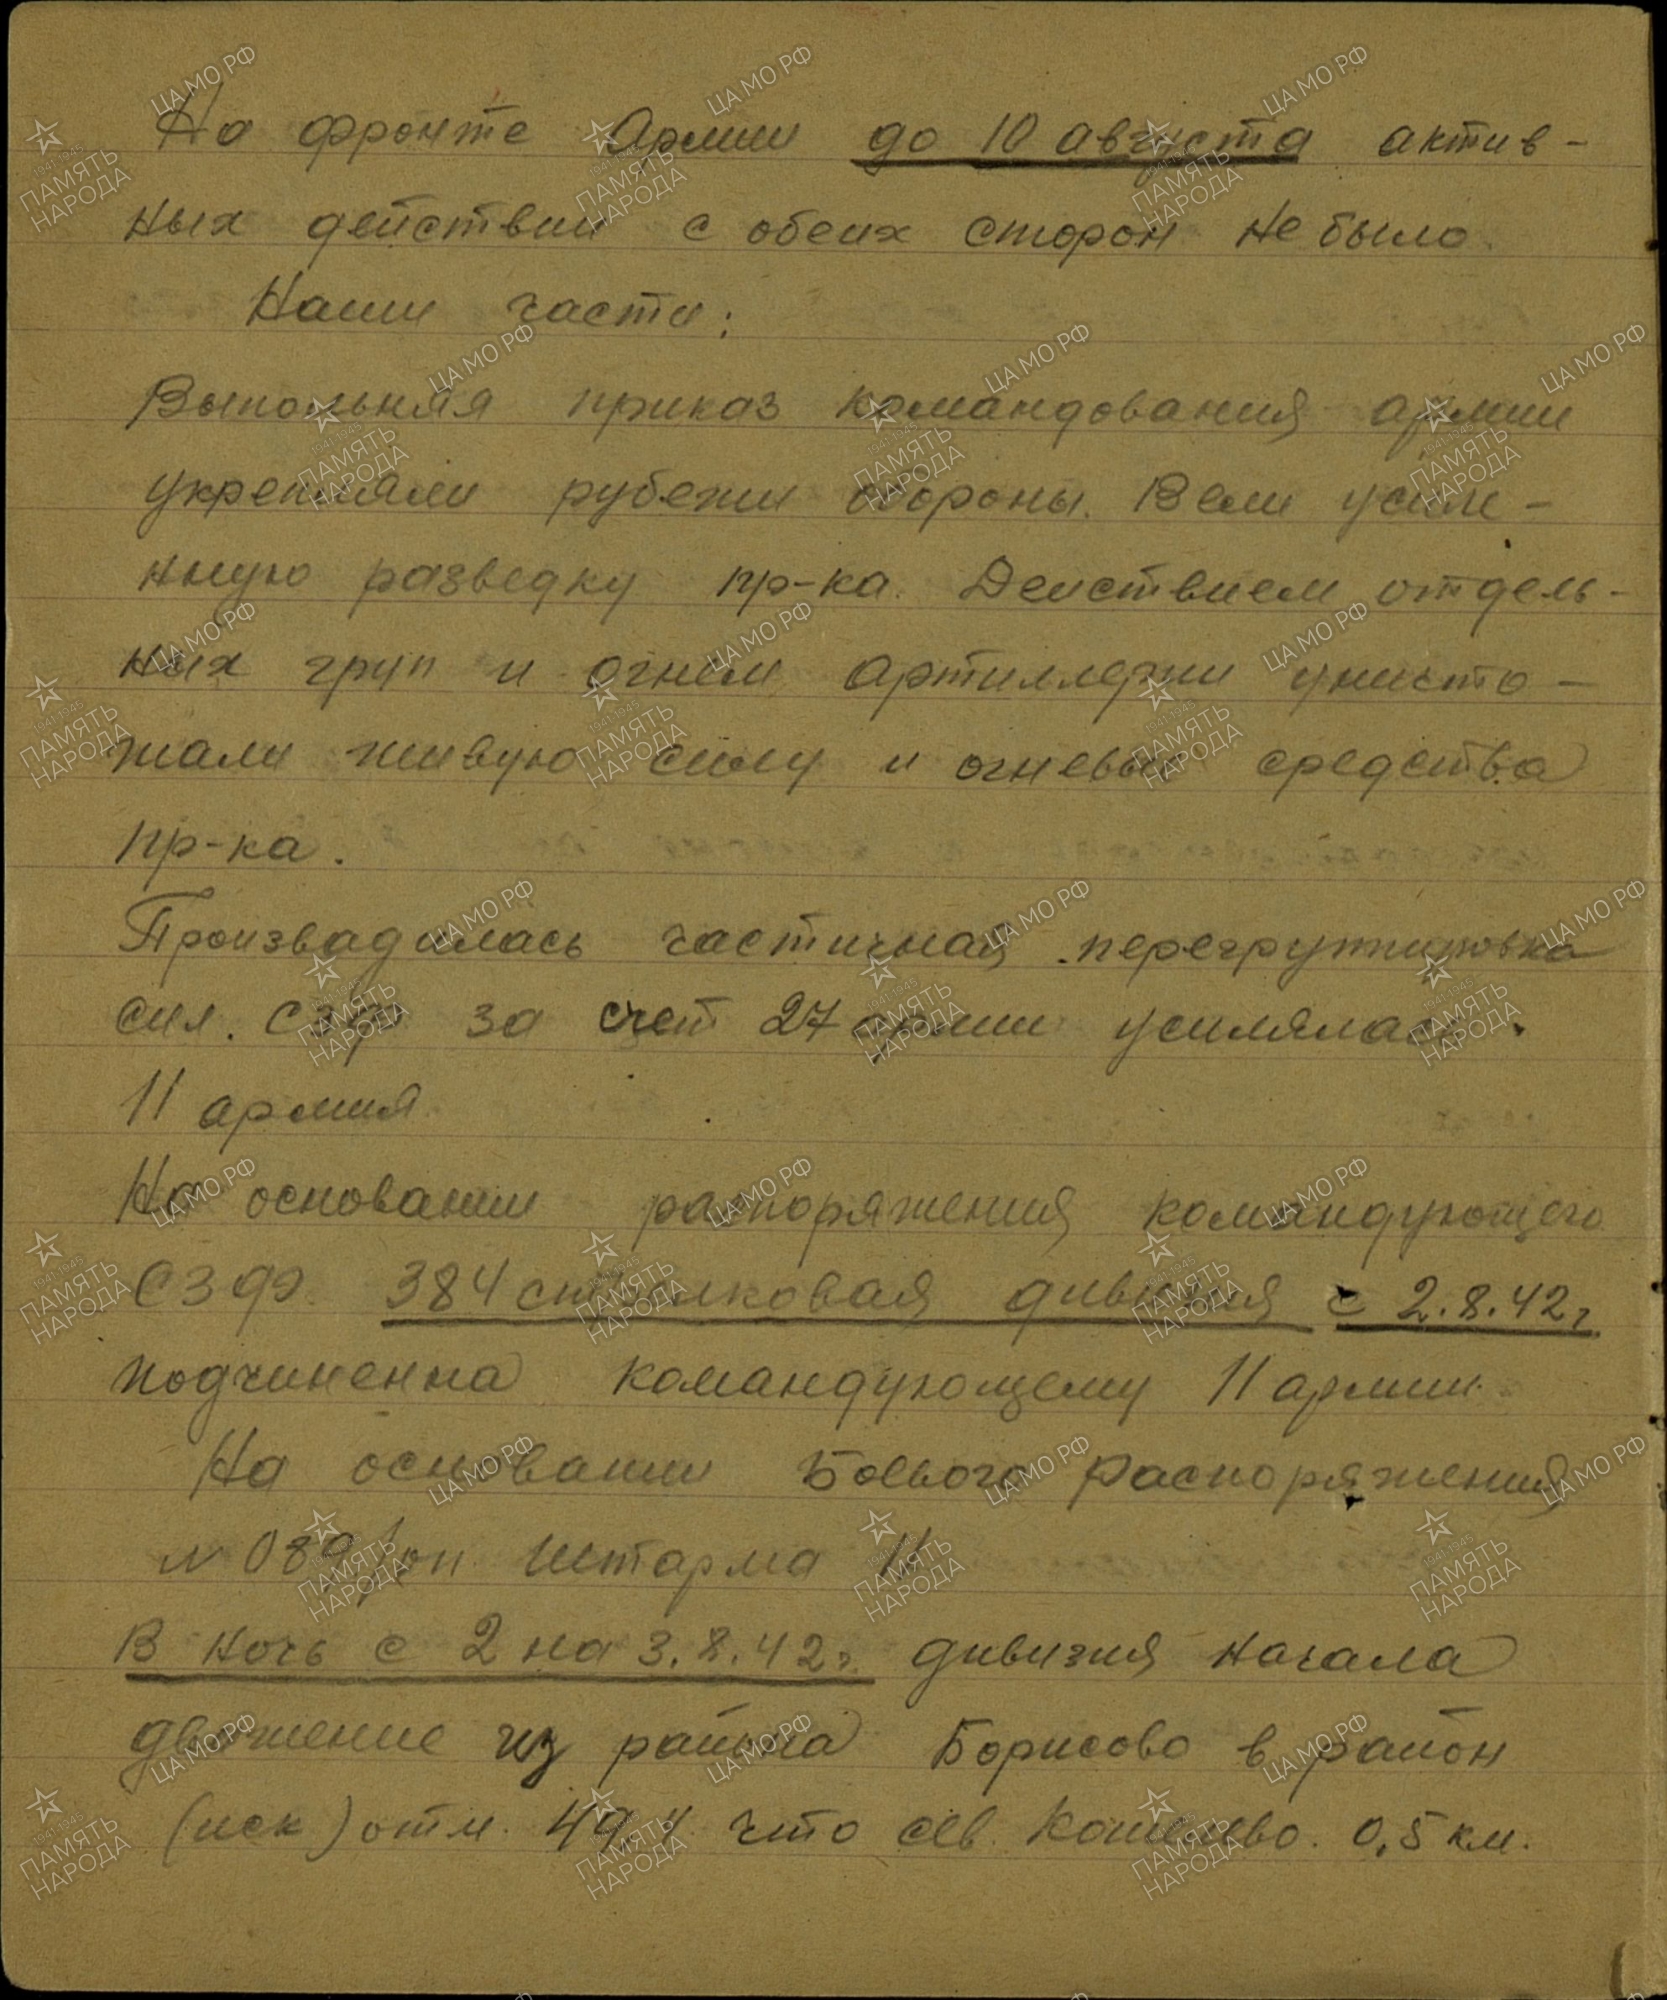 На фронте Армии до 10 августа актив-
ных действии с обеих сторон не было.
Наши части:
Выполняя приказ командования армии
укрепляли рубежи обороны. Вели усиле-
нную разведку пр-ка. Действием отдель-
ных груп и огнем артиллерии уничто-
жали живую силу и огневые средства
пр-ка.
Произвадилась частичная перегруппировка
сил. СЗФ за счет 27 армии усилялась
11 армия.
На основании распоряжения командующего
СЗФ. 384 стрелковая дивизия с 2.8.42г.
подчиненна командующему 11 армии.
На основании Боевого распоряжения
№ 089/оп Штарма 11
В ночь с 2 на 3.8.42г. дивизия начала
движение из района Борисово в район
(иск) отм. 49,4 что сев. 0,5 км.
ЦА МО РФ
1941-1945
ПАМЯТЬ
НАРОДА